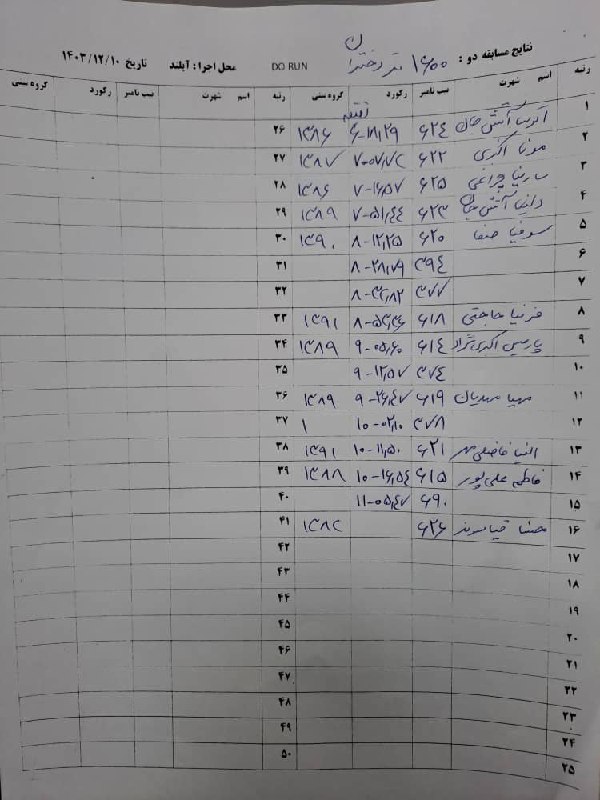 نتایج مسابقه دو : ۱۵۰۰ متر دختران DO RUN محل اجرا : آیلند تاریخ ۱۴۰۳/۱۲/۱۰
رتبه اسم شهرت سب نامبر رکورد گروه سنی رتبه اسم شهرت سب نامبر رکورد گروه سنی
۱ آتش جان ۶۲۴ ۱۳۸۶ ۲۶
۲ مونا اکبری ۶۲۲ ۱۳۸۷ ۲۷
۳ سارینا چراغی ۶۲۵ ۷-۱۶,۵۷ ۱۳۸۶ ۲۸
۴ آتش جان ۶۲۳ ۷-۵۱,۴۴ ۱۳۸۹ ۲۹
۵ سوفیا صفا ۶۲۰ ۸-۱۲,۲۵ ۱۳۹۰ ۳۰
۶ ۳۹۴ ۸-۲۸,۷۹ ۳۱
۷ ۳۷۷ ۳۲
۸ حاجتی ۶۱۸ ۱۳۹۱ ۳۳
۹ ۶۱۴ ۹-۰۵,۶۰ ۱۳۸۹ ۳۴
۱۰ ۳۷۴ ۹-۱۲,۵۷ ۳۵
۱۱ مهدیان ۶۱۹ ۹-۲۶,۴۷ ۱۳۸۹ ۳۶
۱۲ ۳۷۸ ۱۰-۰۲,۱۰ ۱ ۳۷
۱۳ ۶۲۱ ۱۰-۱۱,۵۰ ۱۳۹۱ ۳۸
۱۴ فاطمه علی پور ۶۱۵ ۱۰-۱۶,۵۴ ۱۳۸۸ ۳۹
۱۵ ۶۹۰ ۱۱-۰۵,۴۷ ۴۰
۱۶ ۶۲۶ ۱۳۸۲ ۴۱
۱۷ ۴۲
۱۸ ۴۳
۱۹ ۴۴
۲۰ ۴۵
۲۱ ۴۶
۲۲ ۴۷
۲۳ ۴۸
۲۴ ۴۹
۲۵ ۵۰